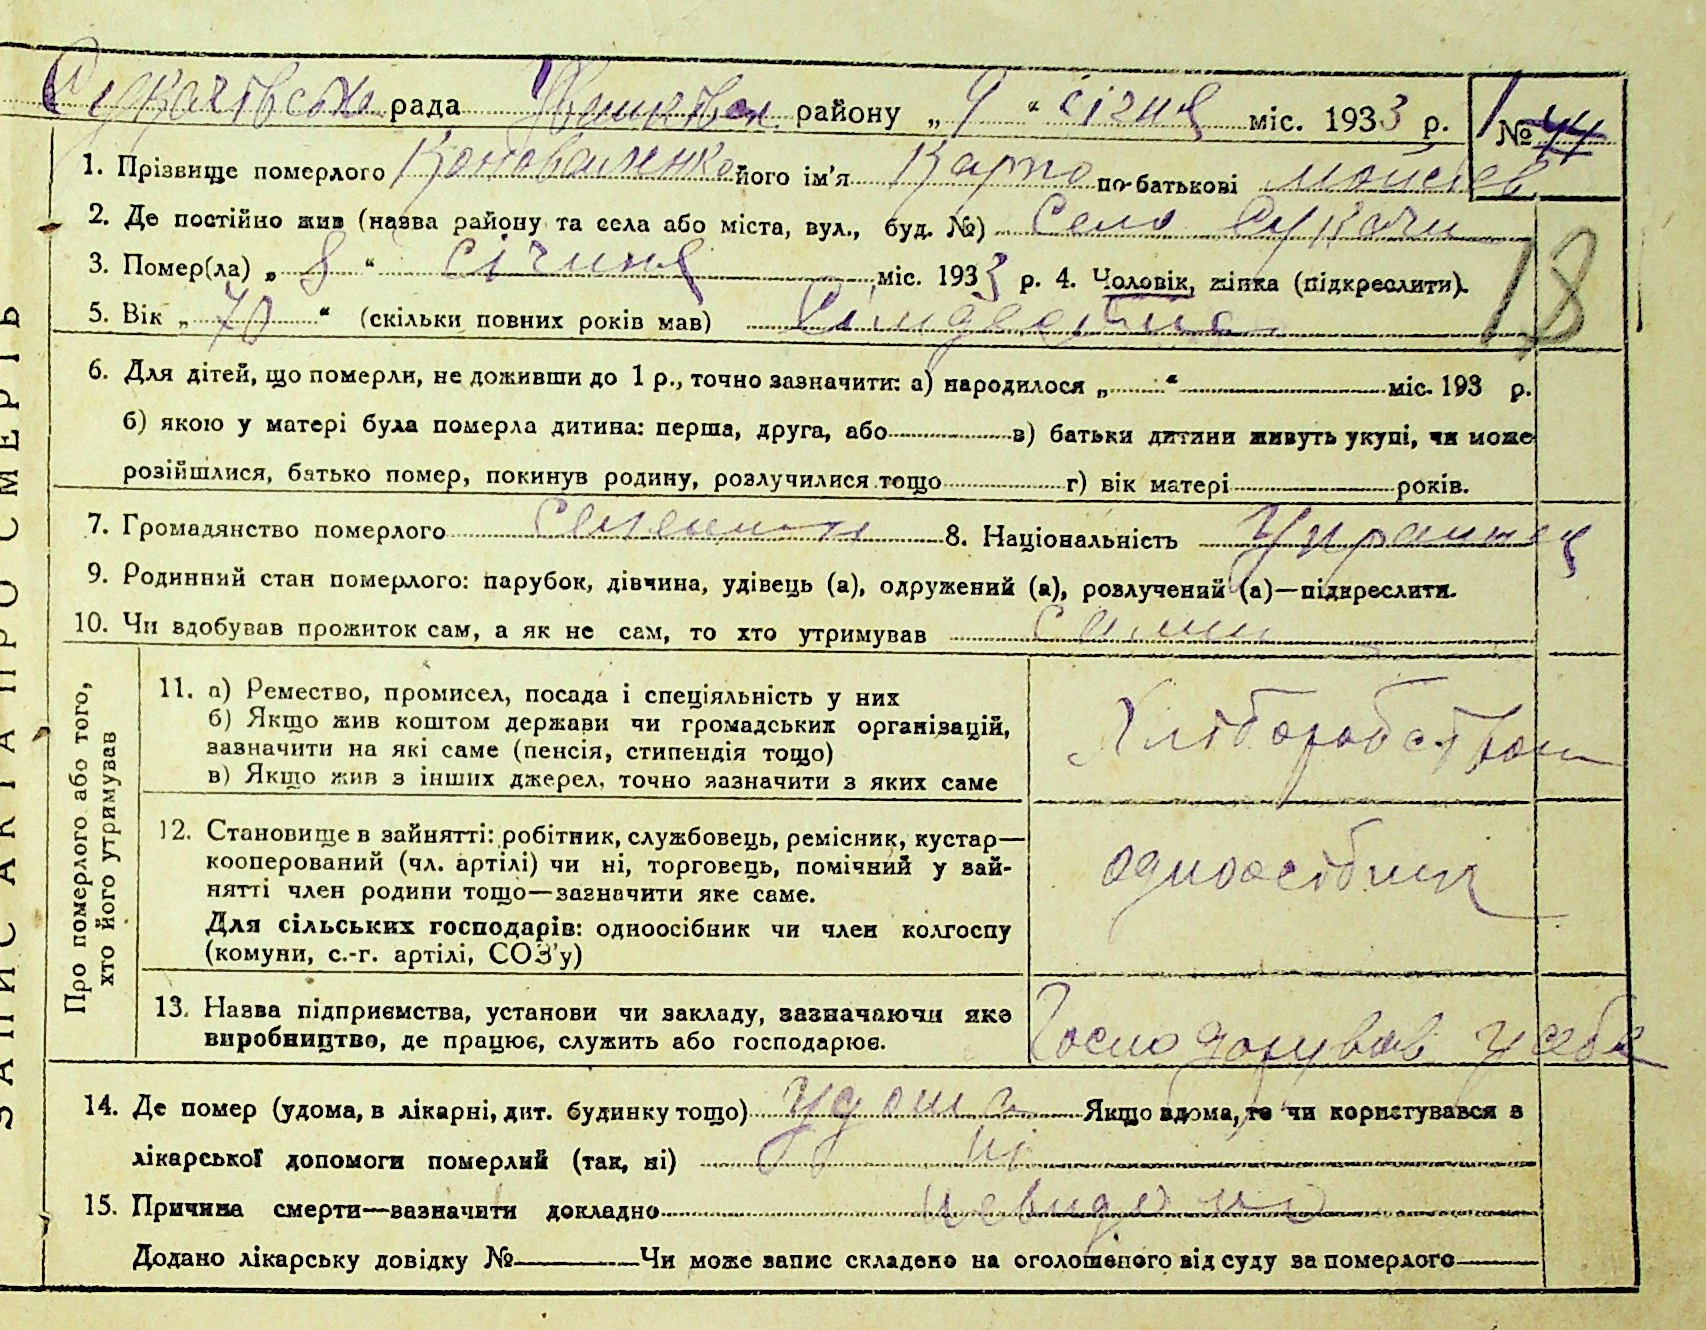 Сукачівська рада Іванківськ. району „9“ січня міс. 1933 р. № 44 1
1. Прізвище померлого Коноваленко його ім'я Карпо по-батькові Мойсеев
2. Де постійно жив (назва району та села або міста, вул., буд. №) Село Сукачи
3. Помер(ла) „8“ січня міс. 1933 р. 4. Чоловік, жінка (підкреслити).
18
5. Вік „70“ (скільки повних років мав) Сімдесять
6. Для дітей, що померли, не доживши до 1 р., точно зазначити: а) народилося „ “ міс. 193 р.
б) якою у матері була померла дитина: перша, друга, або в) батьки дитини живуть укупі, чи може
розійшлися, батько помер, покинув родину, розлучилися тощо г) вік матері років.
7. Громадянство померлого селянин 8. Національність Украинец
9. Родинний стан померлого: парубок, дівчина, удівець (а), одружений (а), розлучений (а)—підкреслити.
10. Чи здобував прожиток сам, а як не сам, то хто утримував
ЗАПИС АКТА ПРО СМЕРТЬ
Про померлого або того,
хто його утримував
11. а) Ремество, промисел, посада і спеціяльність у них
б) Якщо жив коштом держави чи громадських організацій,
зазначити на які саме (пенсія, стипендія тощо)
в) Якщо жив з інших джерел, точно зазначити з яких саме
Хліборобством
12. Становище в зайнятті: робітник, службовець, ремісник, кустар—
кооперований (чл. артілі) чи ні, торговець, помічний у зай-
нятті член родини тощо—зазначити яке саме.
Для сільських господарів: одноосібник чи член колгоспу
(комуни, с.-г. артілі, СОЗ'у)
одноосібник
13. Назва підприємства, установи чи закладу, зазначаючи яке
виробництво, де працює, служить або господарює.
Господарував у себе
14. Де помер (удома, в лікарні, дит. будинку тощо) удома Якщо вдома, то чи користувався з
лікарської допомоги померлий (так, ні) ні
15. Причина смерти—зазначити докладно невидомо
Додано лікарську довідку № Чи може запис складено на оголошеного від суду за померлого